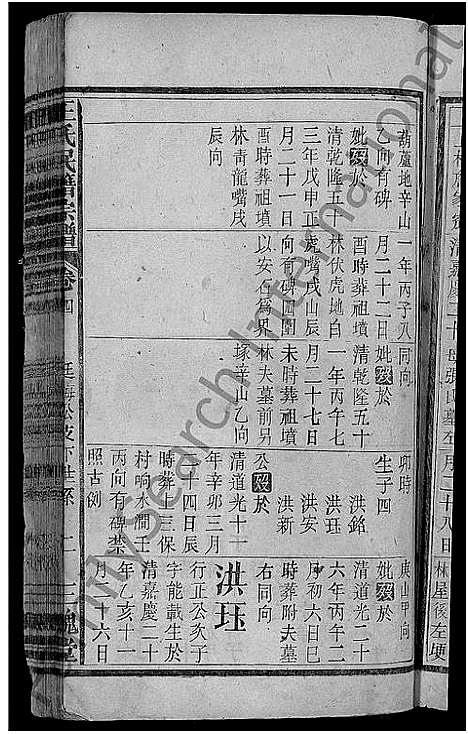 林屋後左埂
葫蘆地辛山
乙向有碑
妣殁於
清乾隆五十
三年戊申正
月二十一日
酉時葬祖墳
林青龍嘴戌
辰向
一年丙子八
月二十二日
酉時葬祖墳
林伏虎地白
虎嘴戌山辰
向有碑四圍
以安石為界
同向
妣殁於
清乾隆五十
一年丙午七
月二十七日
未時葬祖墳
林夫墓前另
塚辛山乙向
卯時
生子四
洪銘
洪珏
洪安
洪新
公殁於
清道光十一
年辛卯三月
二十四日辰
時葬十三保
村响水澗壬
丙向有碑禁
照古例
庚山甲向
妣殁於
清道光二十
六年丙午二
月初六日巳
時葬附夫墓
右同向
洪珏
行正公次子
字能載生於
清嘉慶二十
年乙亥十一
月二十六日
卷四